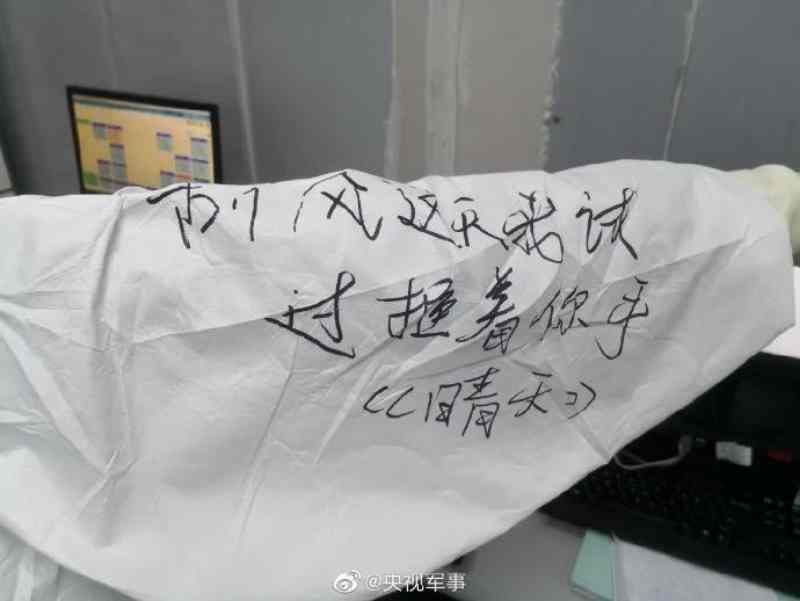 刮风这天我试
过握着你手
《晴天》
@央视军事